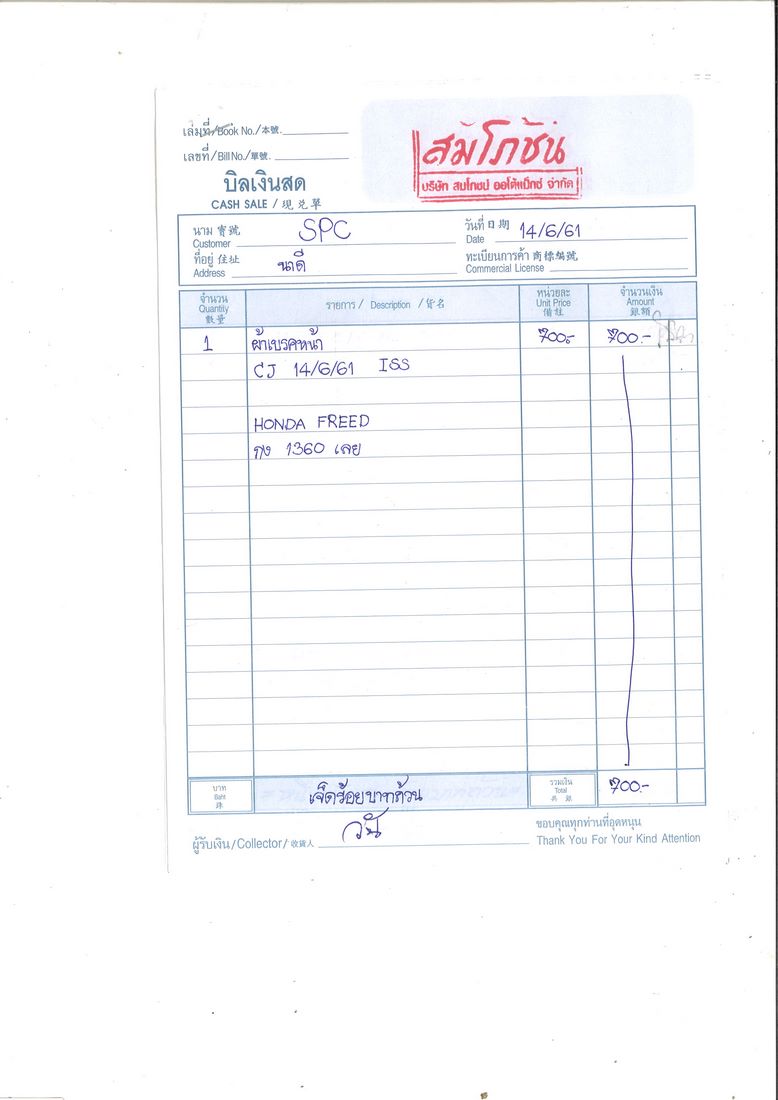 เล่มที่/Book No./本號.
เลขที่/Bill No./單號.
บิลเงินสด
CASH SALE / 現兌單
สมโภชน์
บริษัท สมโภชน์ ออโต้แม็กซ์ จำกัด
นาม 寶號 Customer SPC
วันที่ 日期 Date 14/6/61
ที่อยู่ 住址 Address นาดี
ทะเบียนการค้า 商標編號 Commercial License
จำนวน Quantity 數量
รายการ / Description / 貨名
หน่วยละ Unit Price 備註
จำนวนเงิน Amount 銀額
1 ผ้าเบรคหน้า 700.- 700.-
CJ 14/6/61 ISS
HONDA FREED
กง 1360 เลย
บาท Baht 銖
เจ็ดร้อยบาทถ้วน
รวมเงิน Total 共銀
700.-
ผู้รับเงิน/Collector/收貨人 วัน
ขอบคุณทุกท่านที่อุดหนุน
Thank You For Your Kind Attention